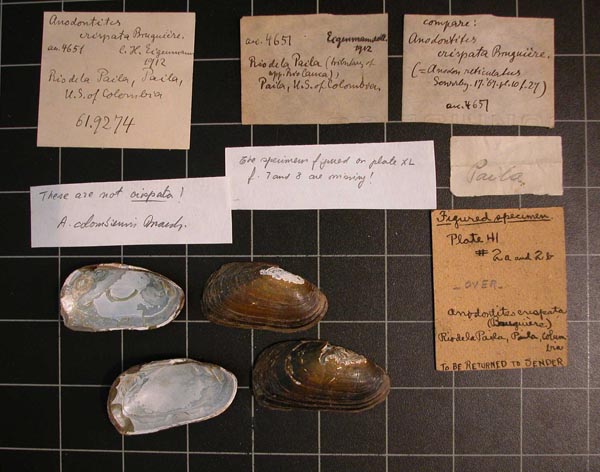 Anodontites
crispata Bruguière.
acc. 4651 C. H. Eigenmann
1912
Rio de la Paila, Paila,
U.S. of Colombia
61.9274
acc. 4651 Eigenmann coll.
1912
Rio de la Paila (tributary of
upp. Rio Cauca),
Paila, U.S. of Colombia.
compare:
Anodontites
crispata Bruguière.
(= Anodon reticulatus
Sowerby. 17. '67. pl. 10 f. 27)
acc. 4651
These are not crispata!
A. colombiensis
specimens figured on plate XL
f. 7 and 8 are missing!
Paila
Figured specimen
Plate 41
# 2a and 2b
- OVER -
Anodontites crispata
(Bruguière)
Rio de la Paila, Paila, Colom
bia
TO BE RETURNED TO SENDER